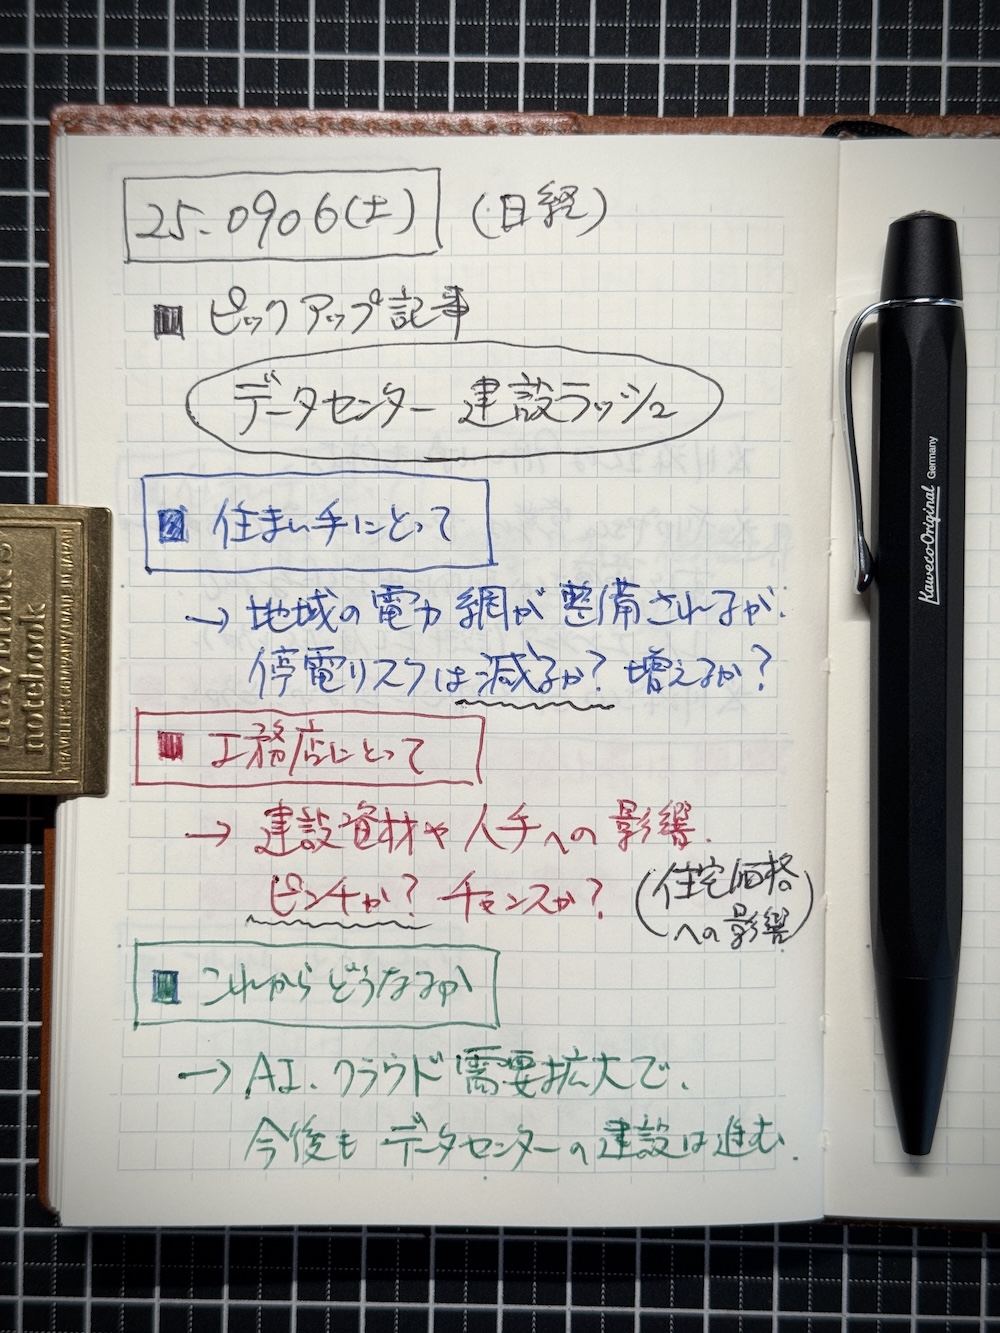 25.0906(土) (日経)
■ ピックアップ記事
データセンター 建設ラッシュ
■ 住まい手にとって
→ 地域の電力網が整備されるが.
停電リスクは減るか? 増えるか?
■ 工務店にとって
→ 建設資材や人手への影響.
ピンチか? チャンスか?
(住宅価格
への影響)
■ これからどうなるか
→ AI. クラウド需要拡大で.
今後もデータセンターの建設は進む.
Kaweco Original Germany
TRAVELER'S
notebook
TRAVELER'S COMPANY MADE IN JAPAN